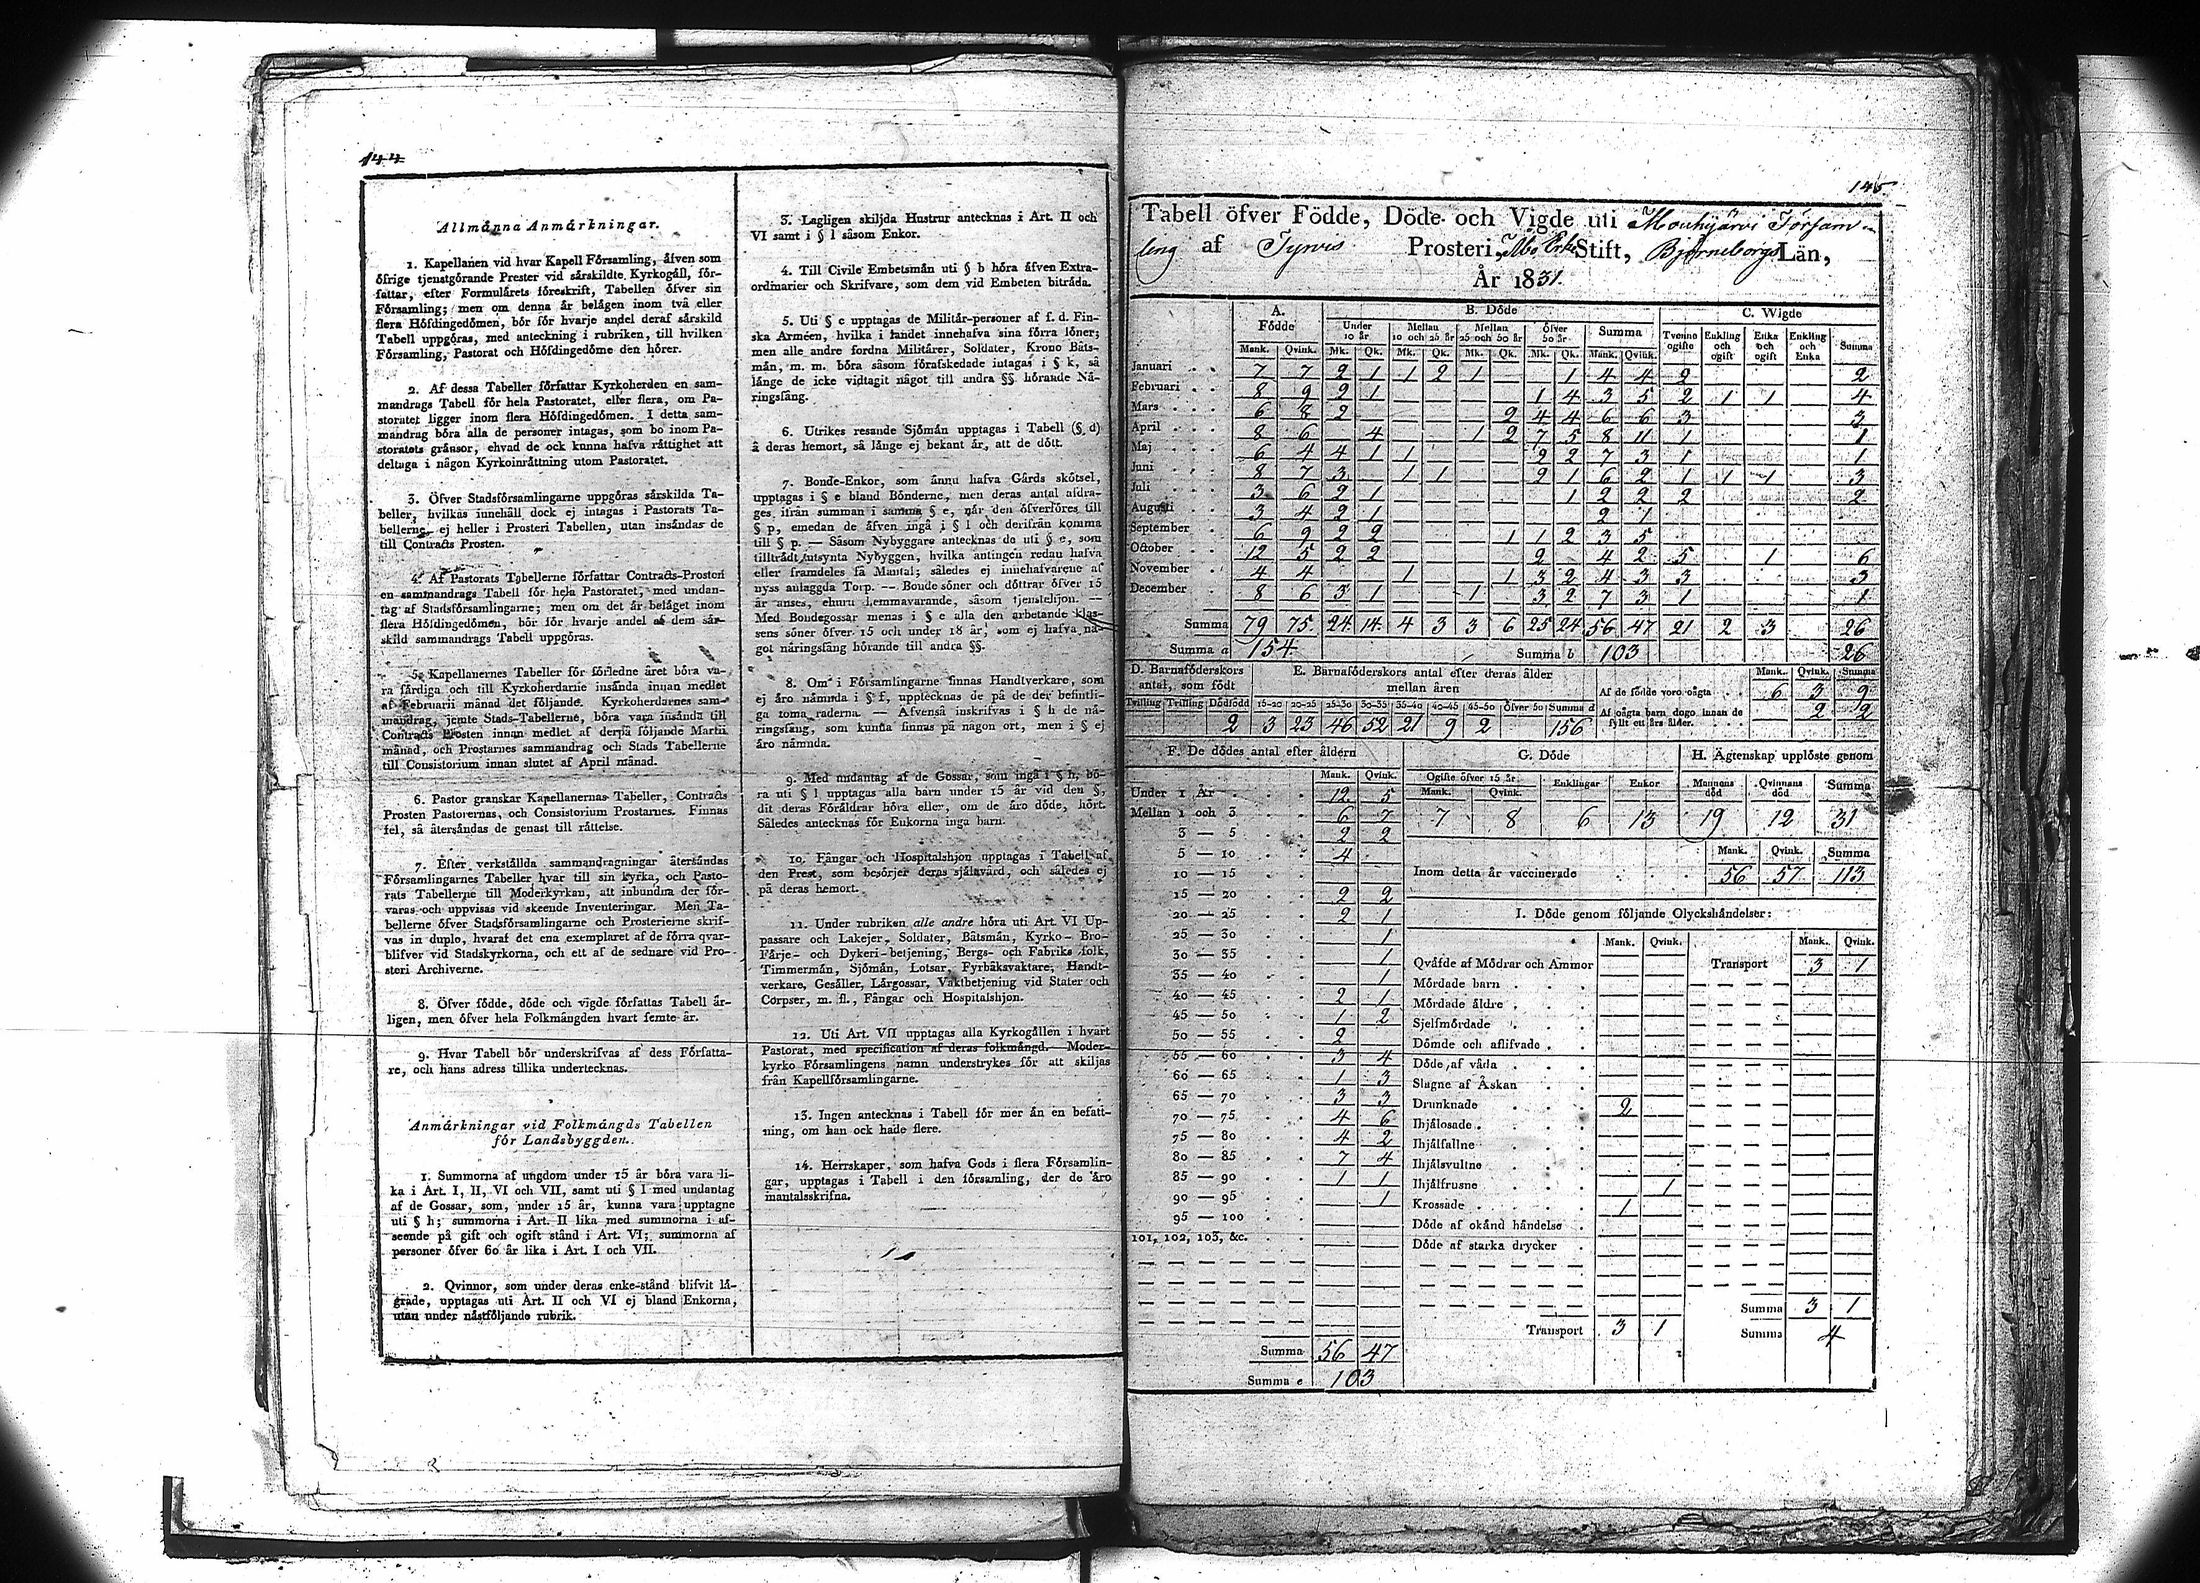 144
Allmånna Anmårkningar.
1. Kapellanen vid hvar Kapell Församling, åfven som
öfrige tjenstgörande Prester vid sårskildte Kyrkogåll, för-
fattar, efter Formulårets föreskrift, Tabellen öfver sin
Församling; men om denna år belågen inom två eller
flera Höfdingedömen, bör för hvarje andel deraf sårskild
Tabell uppgöras, med anteckning i rubriken, till hvilken
Församling, Pastorat och Höfdingedöme den hörer.
2. Af dessa Tabeller författar Kyrkoherden en sam-
mandrags Tabell för hela Pastoratet, eller flera, om Pa-
storatet ligger inom flera Höfdingedömen. I detta sam-
mandrag böra alla de personer intagas, som bo inom Pa-
storatets grånsor, ehvad de ock kunna hafva råttighet att
deltaga i någon Kyrkoinråttning utom Pastoratet.
3. Öfver Stadsförsamlingarne uppgöras sårskilda Ta-
beller, hvilkas innehåll dock ej intages i Pastorats Ta-
bellerne, ej heller i Prosteri Tabellen, utan insåndas de
till Contracts Prosten.
4. Af Pastorats Tabellerne författar Contracts-Prosten
en sammandrags Tabell för hela Pastoratet, med undan-
tag af Stadsförsamlingarne; men om det år belåget inom
flera Höfdingedömen, bör för hvarje andel af dem sår-
skild sammandrags Tabell uppgöras.
5. Kapellanernes Tabeller för förledne året böra va-
ra fårdiga och till Kyrkoherdarne insånda innan medlet
af Februarii månad det följande. Kyrkoherdarnes sam-
mandrag, jemte Stads-Tabellerne, böra vara insånda till
Contracts Prosten innan medlet af derpå följande Martii
månad, och Prostarnes sammandrag och Stads Tabellerne
till Consistorium innan slutet af April månad.
6. Pastor granskar Kapellanernas Tabeller, Contracts
Prosten Pastorernas, och Consistorium Prostarnes. Finnas
fel, så återsåndas de genast till råttelse.
7. Efter verkstållda sammandragningar återsåndas
Församlingarnes Tabeller hvar till sin kyrka, och Pasto-
rats Tabellerne till Moderkyrkan, att inbundna der för-
varas och uppvisas vid skeende Inventeringar. Men Ta-
bellerne öfver Stadsförsamlingarne och Prosterierne skrif-
vas in duplo, hvaraf det ena exemplaret af de förra qvar-
blifver vid Stadskyrkorna, och ett af de sednare vid Pro-
steri Archiverne.
8. Öfver födde, döde och vigde författas Tabell år-
ligen, men öfver hela Folkmångden hvart femte år.
9. Hvar Tabell bör underskrifvas af dess Författa-
re, och hans adress tillika undertecknas.
Anmårkningar vid Folkmångds Tabellen
för Landsbyggden.
1. Summorna af ungdom under 15 år böra vara li-
ka i Art. I, II, VI och VII, samt uti § l med undantag
af de Gossar, som, under 15 år, kunna vara upptagne
uti § h; summorna i Art. II lika med summorna i af-
seende på gift och ogift stånd i Art. VI; summorna af
personer öfver 60 år lika i Art. I och VII.
2. Qvinnor, som under deras enke-stånd blifvit lå-
grade, upptagas uti Art. II och VI ej bland Enkorna,
utan under nåstföljande rubrik.
3. Lagligen skiljda Hustrur antecknas i Art. II och
VI samt i § l såsom Enkor.
4. Till Civile Embetsmån uti § b höra åfven Extra-
ordinarier och Skrifvare, som dem vid Embeten bitråda.
5. Uti § c upptagas de Militår-personer af f. d. Fin-
ska Arméen, hvilka i landet innehafva sina förra löner;
men alle andre fordna Militårer, Soldater, Krono Båts-
mån, m. m. böra såsom förafskedade intagas i § k, så
långe de icke vidtagit något till andra §§ hörande Nå-
ringsfång.
6. Utrikes resande Sjömån upptagas i Tabell (§. d)
å deras hemort, så långe ej bekant år, att de dött.
7. Bonde-Enkor, som ånnu hafva Gårds skötsel,
upptagas i § e bland Bönderne, men deras antal afdra-
ges ifrån summan i samma § e, når den öfverföres till
§ p, emedan de åfven ingå i § l och derifrån komma
till § p. — Såsom Nybyggare antecknas de uti § e, som
tilltrådt utsynta Nybyggen, hvilka antingen redan hafva
eller framdeles få Mantal; således ej innehafvarene af
nyss anlaggda Torp. — Bonde söner och döttrar öfver 15
år anses, ehuru hemmavarande, såsom tjenstehjon. —
Med Bondegossar menas i § e alla den arbetande klas-
sens söner öfver 15 och under 18 år, som ej hafva nå-
got näringsfång hörande till andra §§.
8. Om i Församlingarne finnas Handtverkare, som
ej åro nåmnda i § f, upptecknas de på de der befintli-
ga toma raderna. — Åfvenså inskrifvas i § h de nå-
ringsfång, som kunna finnas på någon ort, men i § ej
åro nåmnda.
9. Med undantag af de Gossar, som ingå i § h, bö-
ra uti § l upptagas alla barn under 15 år vid den §,
dit deras Föråldrar höra eller, om de åro döde, hört.
Således antecknas för Enkorna inga barn.
10. Fångar och Hospitalshjon upptagas i Tabell af
den Prest, som besörjer deras själavård, och således ej
på deras hemort.
11. Under rubriken alle andre höra uti Art. VI Up-
passare och Lakejer, Soldater, Båtsmån, Kyrko- Bro-
Fårje- och Dykeri-betjening, Bergs- och Fabriks folk,
Timmermån, Sjömån, Lotsar, Fyrbåksvaktare, Handt-
verkare, Gesåller, Lårgossar, Vaktbetjening vid Stater och
Corpser, m. fl., Fångar och Hospitalshjon.
12. Uti Art. VII upptagas alla Kyrkogållen i hvart
Pastorat, med specification af deras folkmångd. Moder-
kyrko Församlingens namn understrykes för att skiljas
från Kapellförsamlingarne.
13. Ingen antecknas i Tabell för mer ån en befatt-
ning, om han ock hade flere.
14. Herrskaper, som hafva Gods i flera Församlin-
gar, upptagas i Tabell i den församling, der de åro
mantalsskrifna.
145.
Tabell öfver Födde, Döde och Vigde uti Mouhijärvi Församling
af Tyrvis Prosteri, Åbo Erke Stift, Björneborgs Län,
År 1831.
A. Födde B. Döde C. Wigde
Under 10 år Mellan 10 och 25 år Mellan 25 och 50 år Öfver 50 år Summa Tvenne ogifte Enkling och ogift Enka och ogift Enkling och Enka Summa
Mank. Qvink. Mk. Qk. Mk. Qk. Mk. Qk. Mk. Qk. Mank. Qvink.
Januari 7 7 2 1 1 2 1 1 4 4 2 2
Februari 8 9 2 1 1 4 3 5 2 1 1 4
Mars 6 8 2 2 4 4 6 6 3 3
April 8 6 4 1 2 7 5 8 11 1 1
Maj 6 4 4 1 1 2 2 7 3 1 1
Juni 8 7 3 1 1 2 1 6 2 1 1 1 3
Juli 3 6 2 1 1 2 2 2 2
Augusti 3 4 2 1 2 1
September 6 9 2 2 1 1 2 3 5
October 12 5 2 2 2 4 2 5 1 6
November 4 4 1 1 3 2 4 3 3 3
December 8 6 3 1 1 3 2 7 3 1 1
Summa 79 75 24 14 4 3 3 6 25 24 56 47 21 2 3 26
Summa a 154 Summa b 103 26
D. Barnaföderskors antal, som födt E. Barnaföderskors antal efter deras ålder mellan åren
Mank. Qvink. Summa
Tvilling Trilling Dödfödd 15-20 20-25 25-30 30-35 35-40 40-45 45-50 Öfver 50 Summa d
2 3 23 46 52 21 9 2 156
Af de födde voro oägta 6 3 9
Af oägta barn dogo innan de fyllt ett års ålder. 2 2
F. De dödes antal efter åldern
Mank. Qvink.
Under 1 År 12 5
Mellan 1 och 3 6 7
3 — 5 2 2
5 — 10 4
10 — 15
15 — 20 2 2
20 — 25 2 1
25 — 30 1
30 — 35 1
35 — 40 1
40 — 45 2 1
45 — 50 1 2
50 — 55 2
55 — 60 3 4
60 — 65 1 3
65 — 70 3 3
70 — 75 4 6
75 — 80 4 2
80 — 85 7 4
85 — 90 1 1
90 — 95 1
95 — 100
101, 102, 103, &c.
Summa 56 47
Summa e 103
G. Döde H. Ägtenskap upplöste genom
Ogifte öfver 15 år Enklingar Enkor Mannens död Qvinnans död Summa
Mank. Qvink.
7 8 6 13 19 12 31
Mank. Qvink. Summa
Inom detta år vaccinerade 56 57 113
I. Döde genom följande Olyckshåndelser:
Mank. Qvink. Mank. Qvink.
Qvåfde af Mödrar och Ammor Transport 3 1
Mördade barn
Mördade åldre
Sjelfmördade
Dömde och aflifvade
Döde af våda
Slagne af Åskan
Drunknade 2
Ihjålosade
Ihjålfallne
Ihjålsvultne
Ihjålfrusne 1
Krossade 1
Döde af okånd håndelse
Döde af starka drycker
Summa 3 1
Transport 3 1 Summa 4